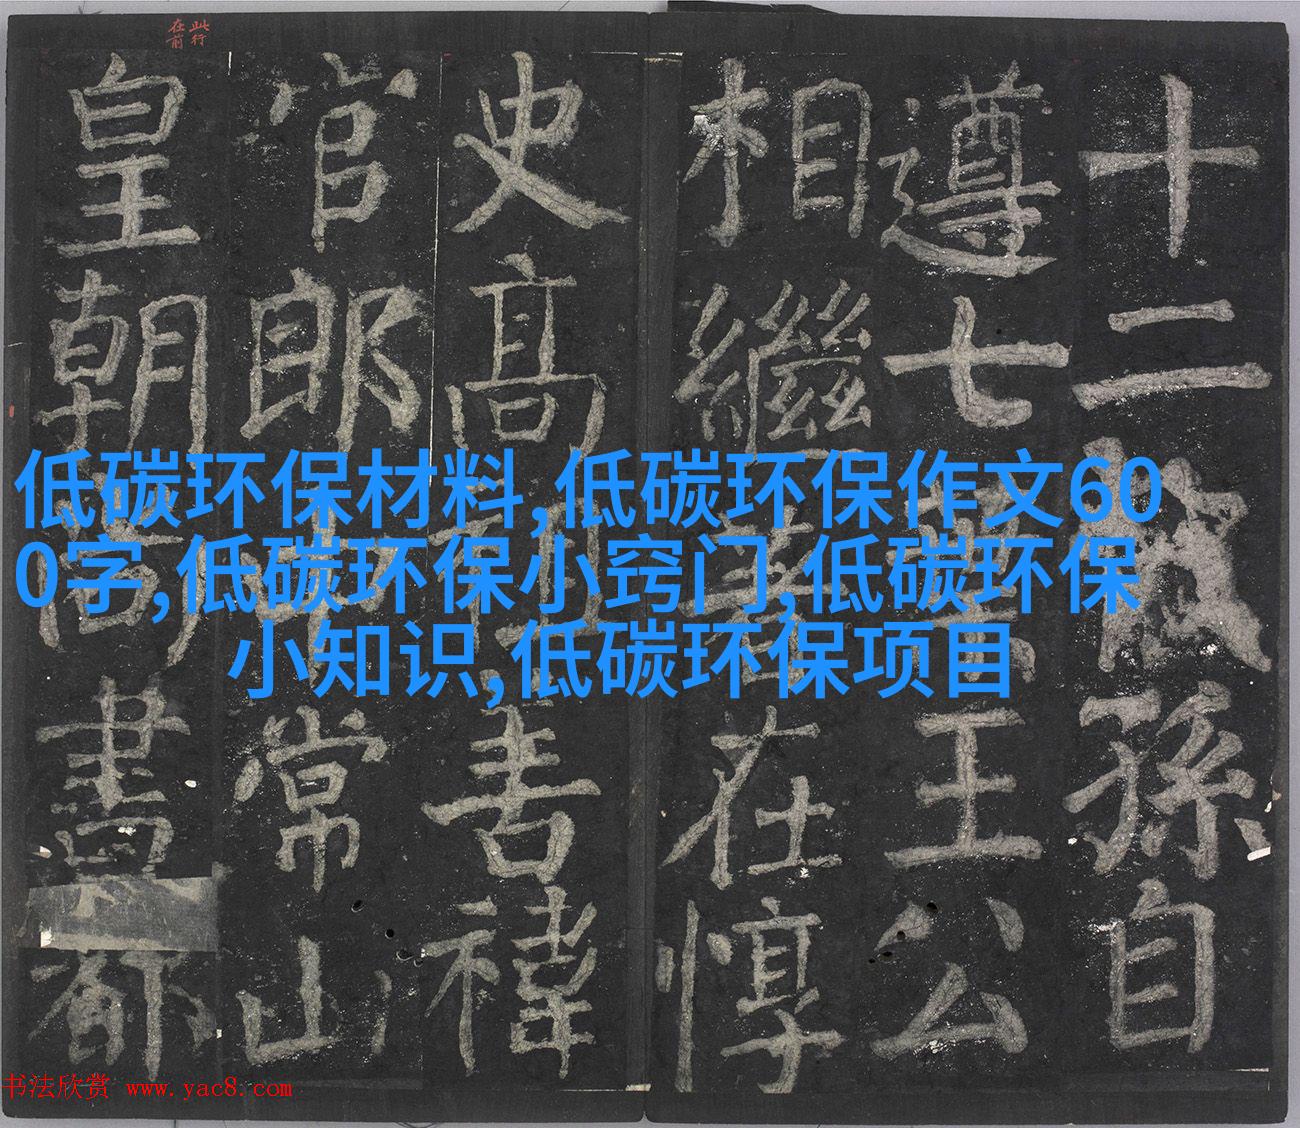 此行在前
十二孫自
遵七王公
相繼在惇
史高祖禕
官郎中常山
皇朝尚書都
低碳环保材料,低碳环保作文60
0字,低碳环保小窍门,低碳环保
小知识,低碳环保项目
书法欣赏 www.yac8.com